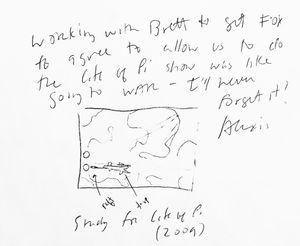 Working with Brett to get Fox
to agree to allow us to do
the Life of Pi show was like
going to war - I'll never
forget it!
Alexis
raft
Study for Life of Pi
(2009)